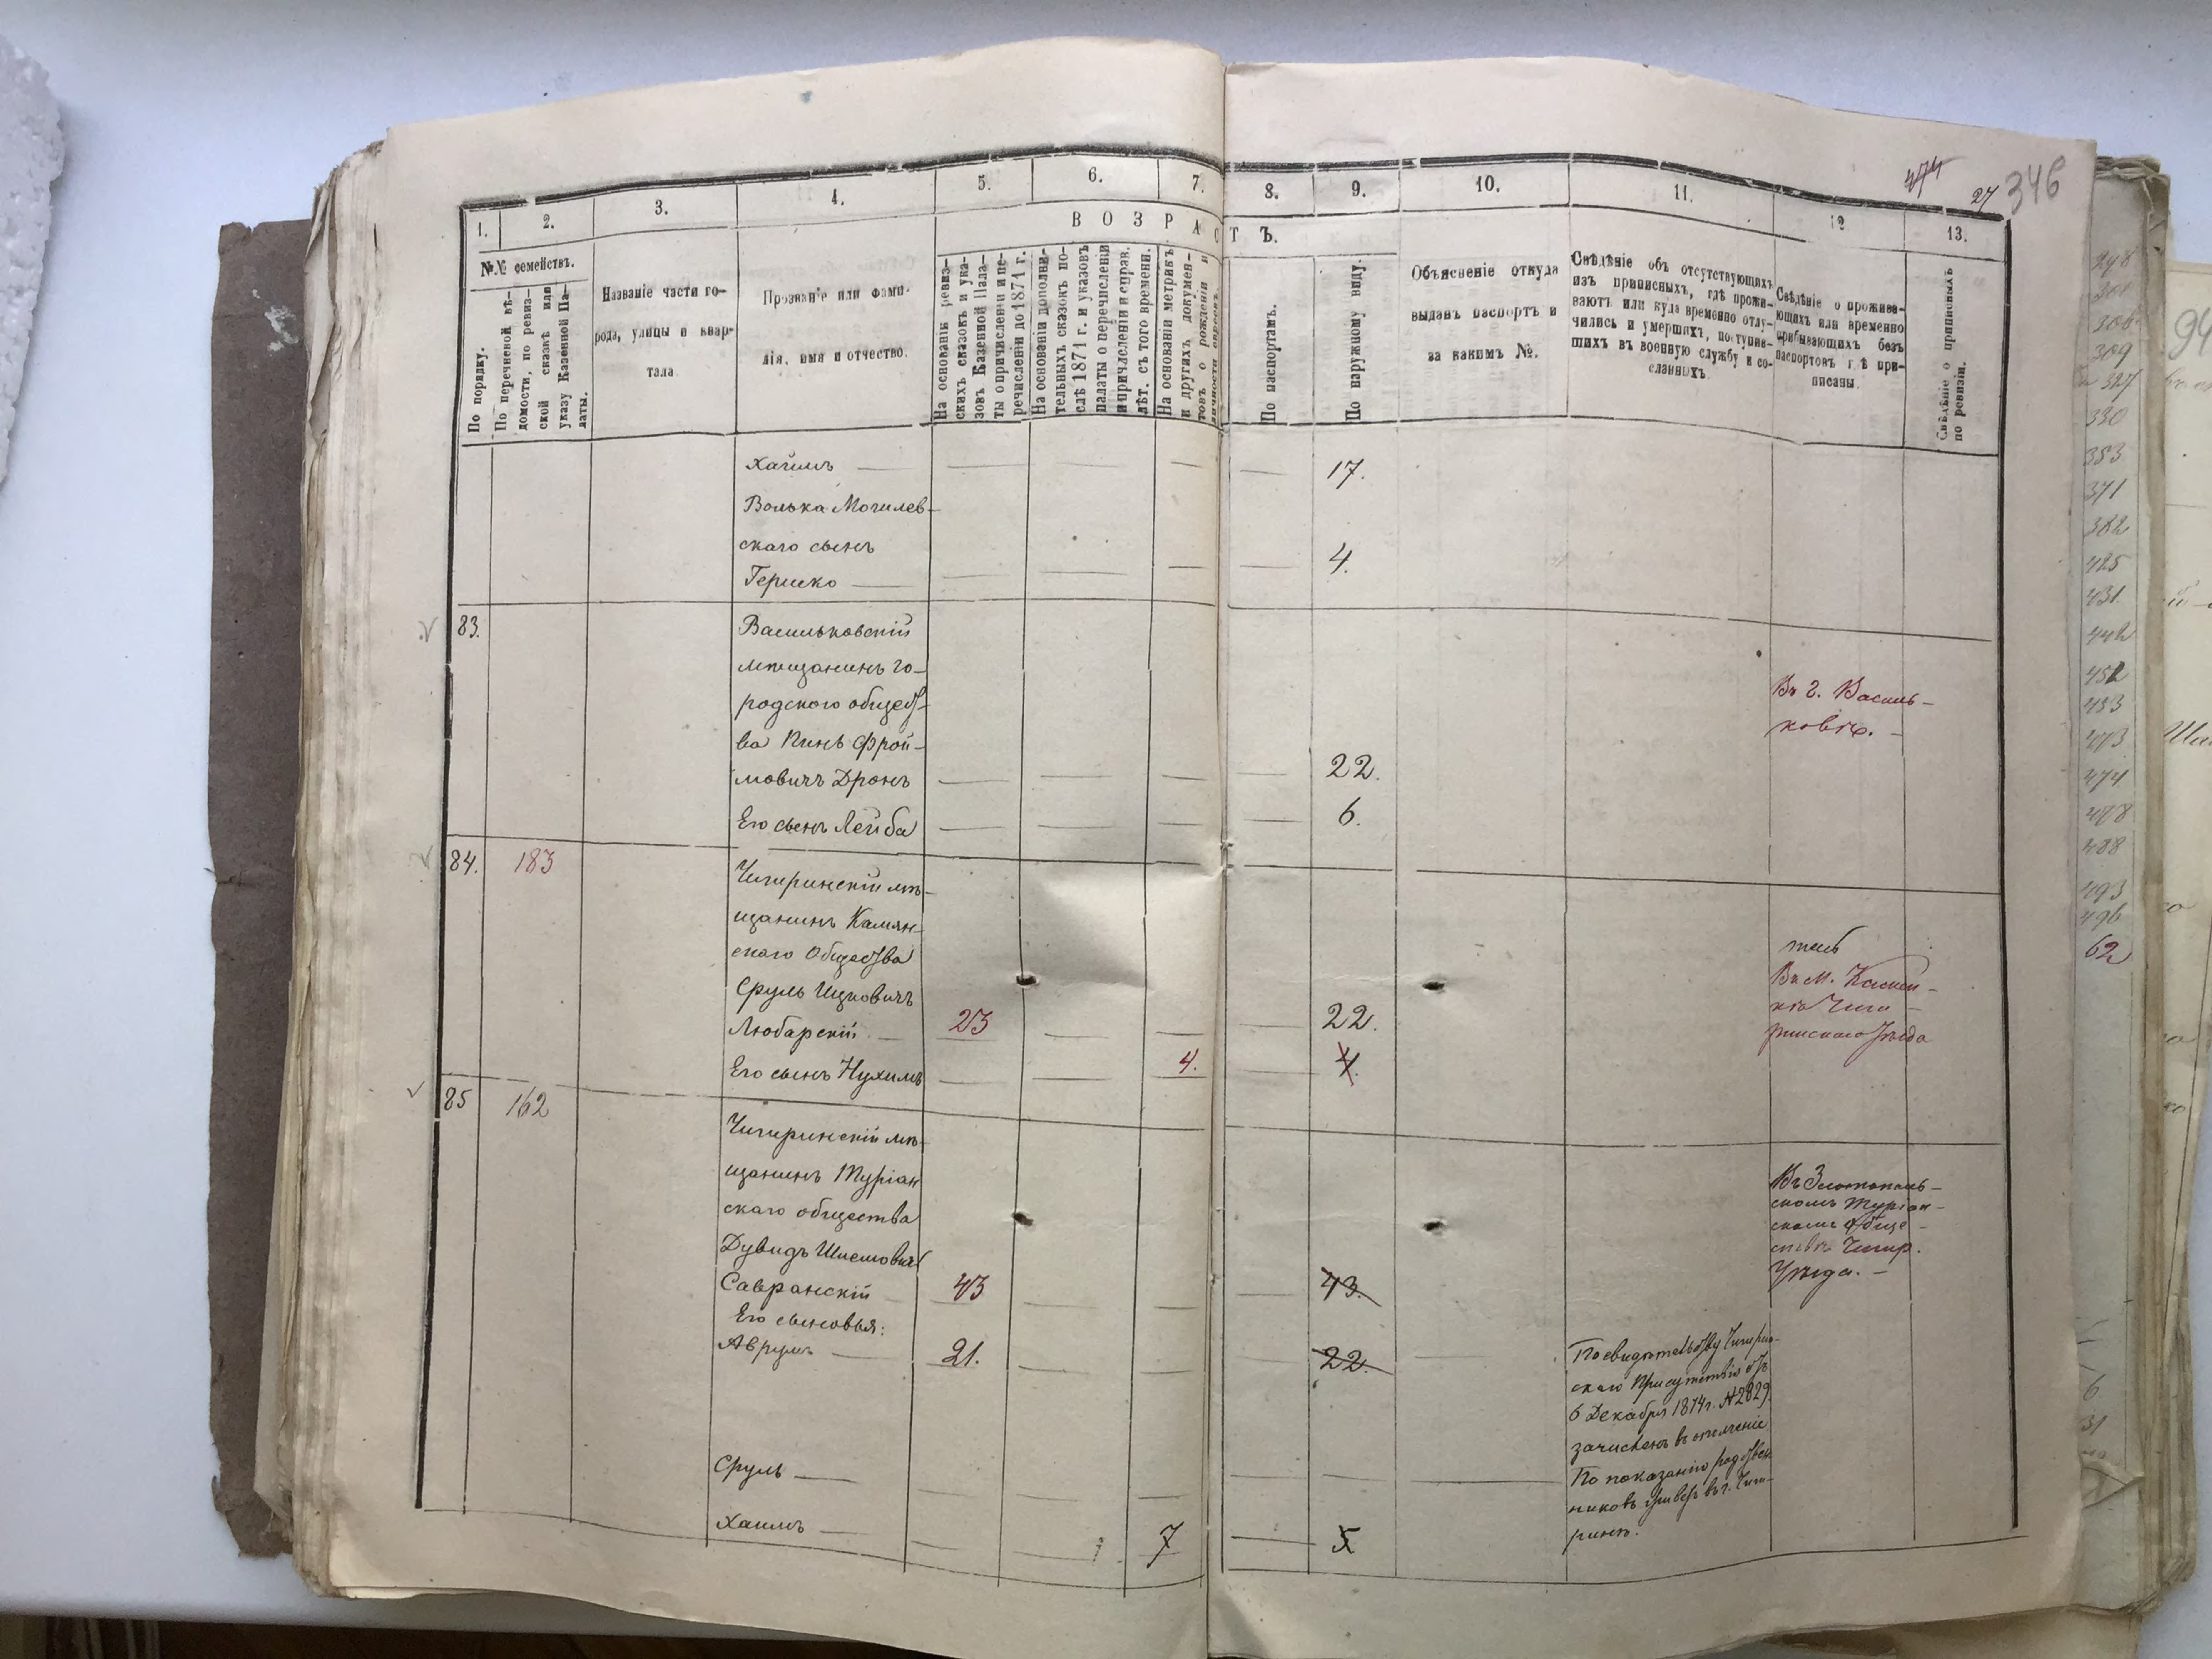 474
27 346
1. 2. 3. 4. 5. 6. 7. 8. 9. 10. 11. 12 13.
В О З Р А С Т Ъ.
№№ семействъ.
По порядку.
По перечневой вѣ-
домости, по ревиз-
ской сказкѣ или
указу Казенной Па-
латы.
Названіе части го-
рода, улицы и квар-
тала
Прозваніе или фами-
лія, имя и отчество.
На основаніи ревиз-
скихъ сказокъ и ука-
зовъ Казенной Пала-
ты о причисленіи и пе-
речисленіи до 1871 г.
На основаніи дополни-
тельныхъ сказокъ по-
слѣ 1871 г. и указовъ
палаты о перечисленіи
и причисленіи и справ.
лѣт. съ того времени.
На основаніи метрикъ
и другихъ докумен-
товъ о рожденіи и
По паспортамъ.
По наружному виду.
Объясненіе откуда
выданъ паспортъ и
за какимъ №.
Свѣдѣніе объ отсутствующихъ
изъ приписныхъ, гдѣ прожи-
ваютъ или куда временно отлу-
чились и умершихъ, поступив-
шихъ въ военную службу и со-
сланныхъ
Свѣдѣніе о прожива-
ющихъ или временно
прибывающихъ безъ
паспортовъ гдѣ при-
писаны.
Свѣдѣніе о приписныхъ
по ревизіи.
Хаимъ — 17.
Волька Могилев-
скаго сынъ
Гершко — 4.
83. Васильковскій
мѣщанинъ го-
родского общест-
ва Пинь Фрой-
мовичъ Дронъ 22.
Его сынъ Лейба 6.
Въ г. Василь-
ковѣ. -
84. 183 Чигиринскій мѣ-
щанинъ Камян-
скаго Общества
Сруль Ицковичъ
Любарскій — 23 22.
Его сынъ Нухимъ 4. 4.
Въ М. Камен-
кѣ Чиги-
ринскаго уѣзда
85 162 Чигиринскій мѣ-
щанинъ Туріан
скаго общества
Дувидъ Шиемович
Савранскій 43 43.
Его сыновья:
Аврумъ — 21. 22.
Сруль —
Хаимъ — 7 5
Въ Златополь-
скомъ Туріан-
скомъ обще-
ствѣ Чигир.
Уѣзда. -
По свидѣтельству Чигирин-
скаго Присутствія отъ
6 Декабря 1874г. №2829.
зачисленъ въ ополченіе
По показанію родствен-
никовъ живетъ въ г. Чиги-
ринѣ.
330
353
371
382
425
431
442
452
453
474
488
493
496
62
94
6
31